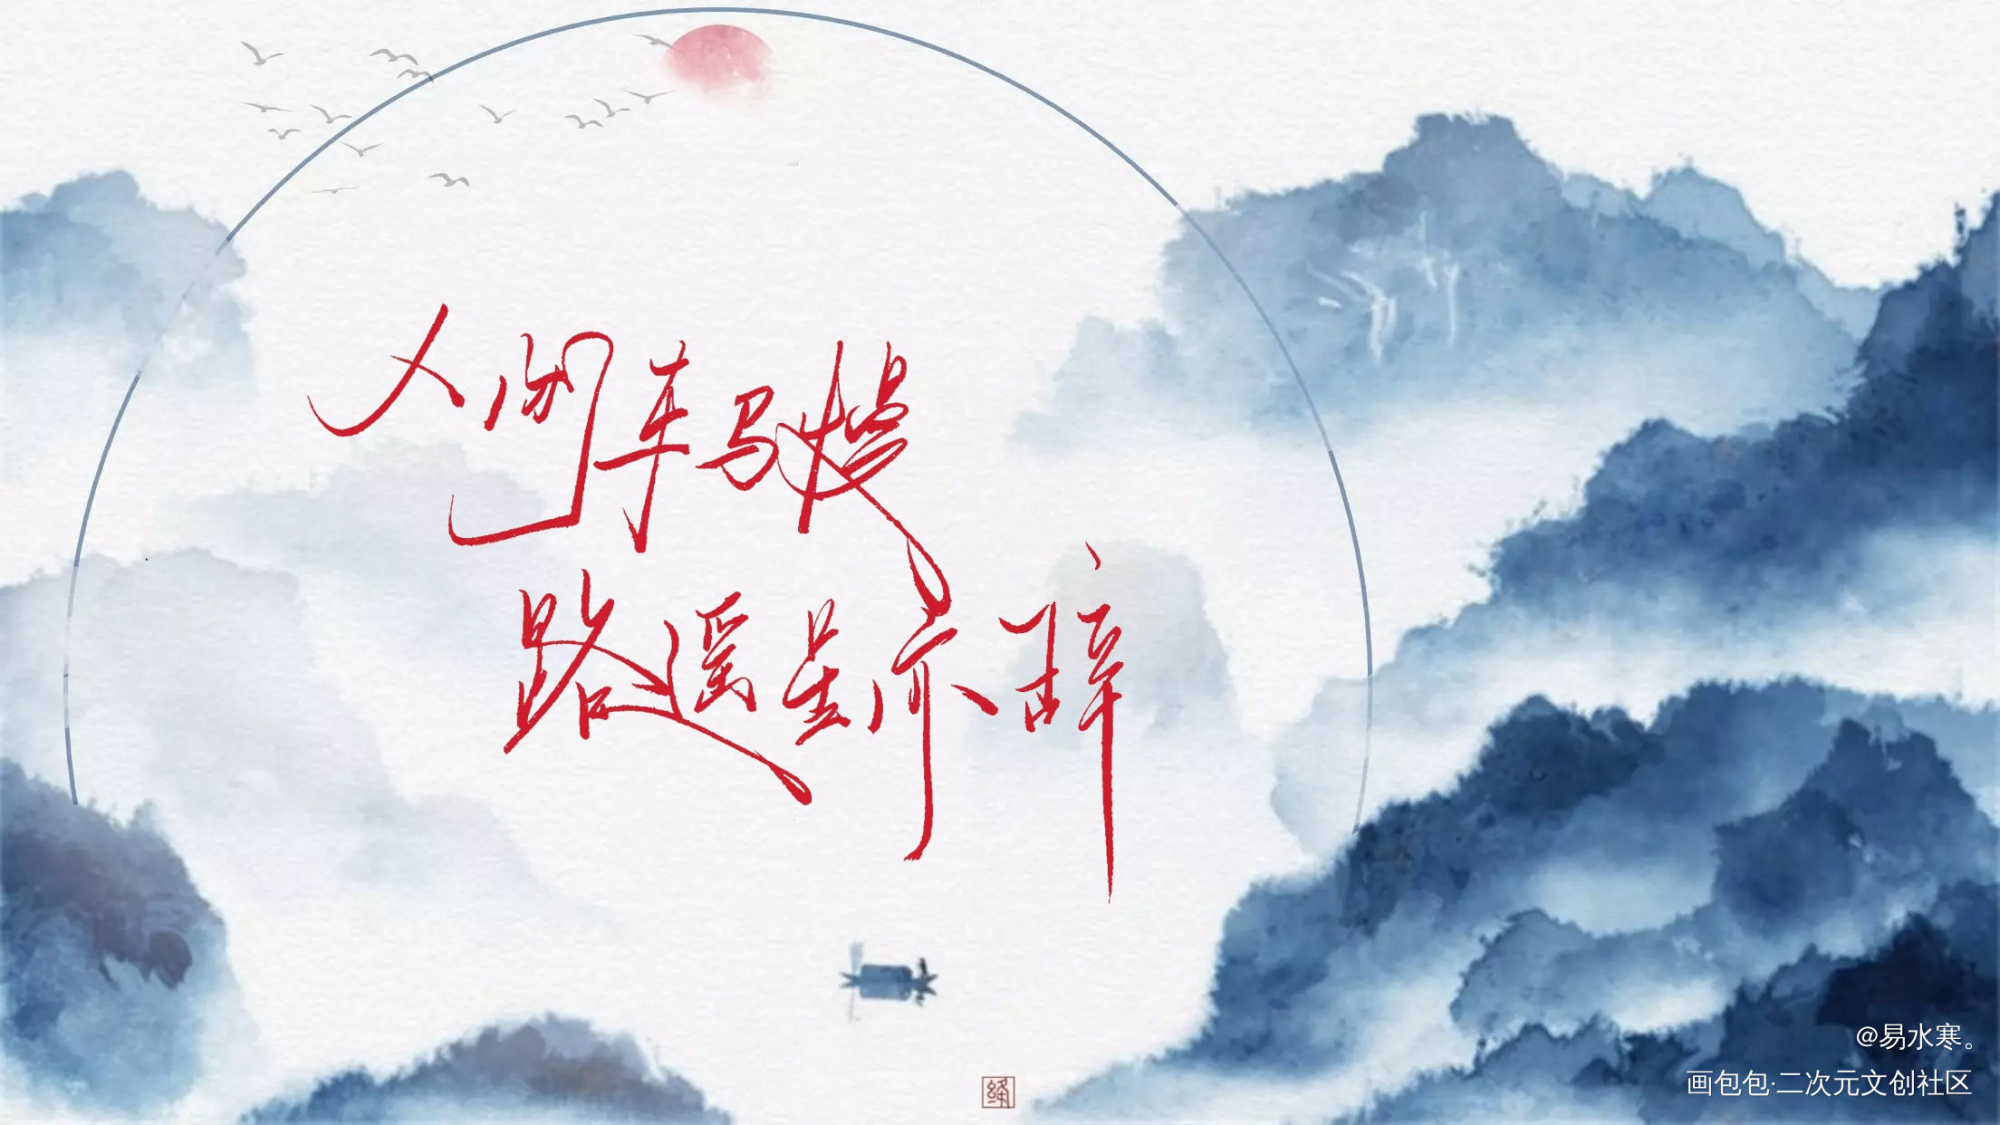 人间车马慢
路遥星亦辞
@易水寒。
画包包·二次元文创社区